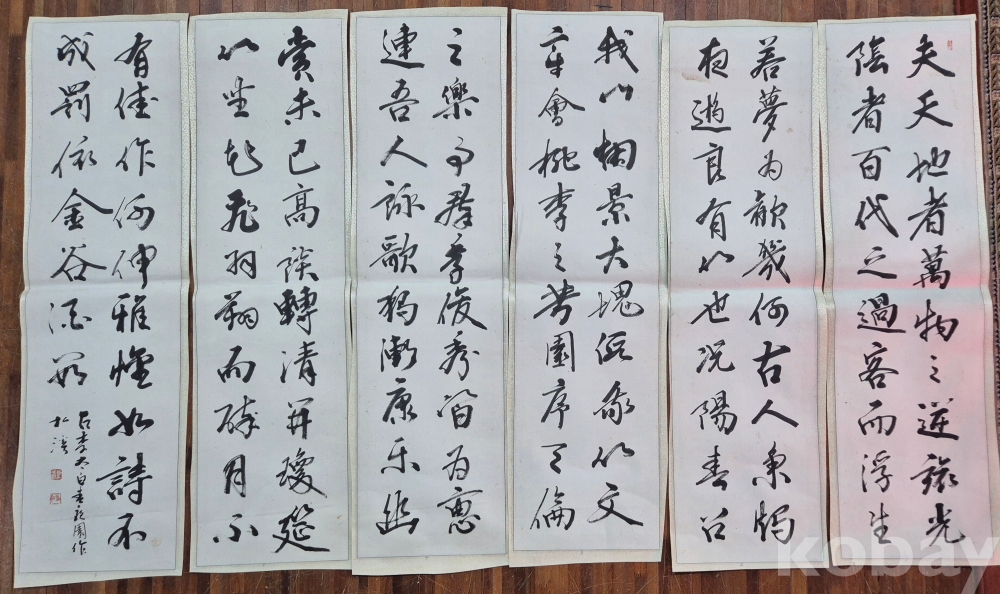 夫天地者萬物之逆旅光
陰者百代之過客而浮生
若夢为歡幾何古人秉燭
夜遊良有以也況陽春召
我以烟景大塊假我以文
章會桃李之芳園序天倫
之樂事群季俊秀皆为惠
連吾人詠歌獨慚康樂幽
賞未已高談轉清開瓊筵
以坐花飛羽觴而醉月不
有佳作何伸雅懷如詩不
成罰依金谷酒數
李太白春夜園作
松
kobay